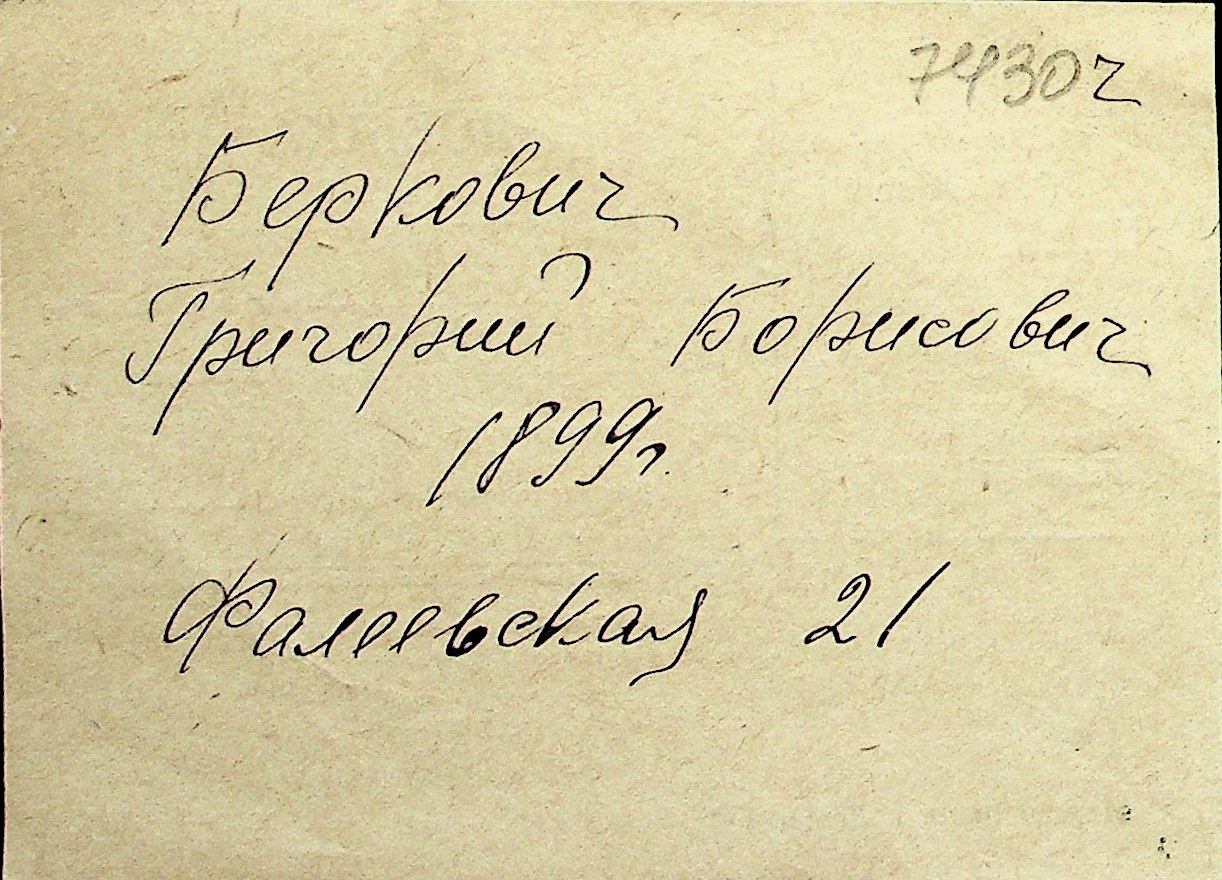 7430ч
Беркович
Григорий Борисович
1899г.
Фалеевская 21